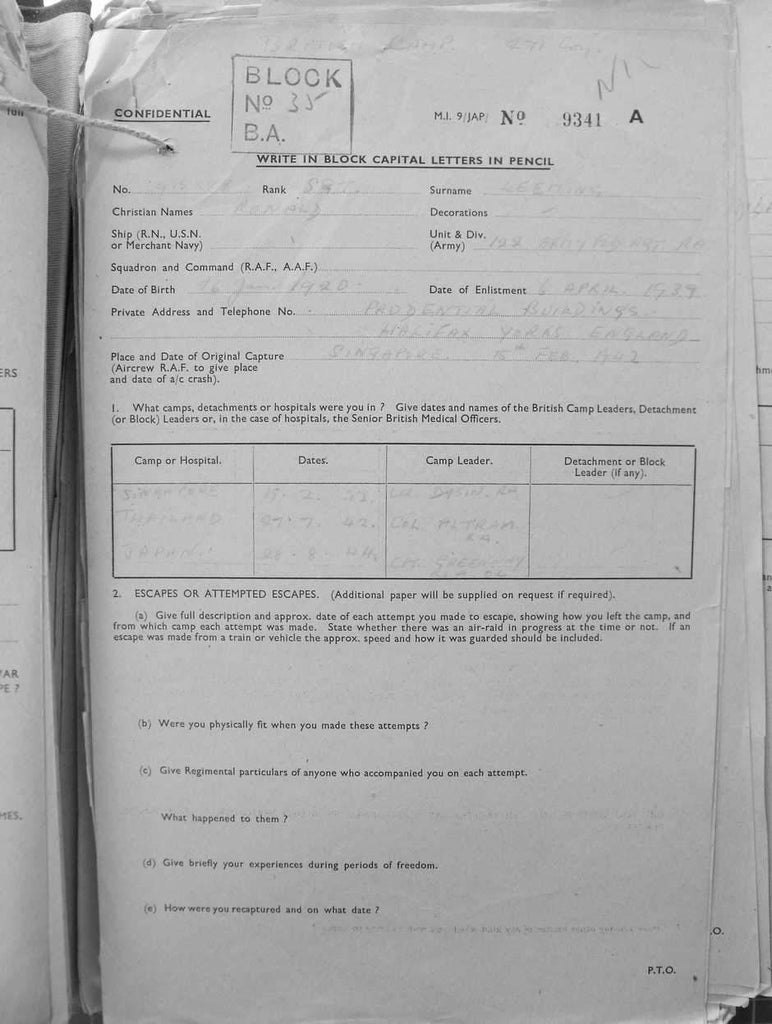 BRITISH CAMP.
BLOCK
Nº 35
B.A.
CONFIDENTIAL
M.I. 9/JAP/ Nº 9341 A
WRITE IN BLOCK CAPITAL LETTERS IN PENCIL
No. Rank SGT. Surname LEEMING
Christian Names RONALD Decorations -
Ship (R.N., U.S.N.
or Merchant Navy)
Unit & Div.
(Army) 122 ARMY FD RGT RA
Squadron and Command (R.A.F., A.A.F.)
Date of Birth 16 Jan 1920. Date of Enlistment 6 APRIL 1939
Private Address and Telephone No. PRUDENTIAL BUILDINGS.
HALIFAX YORKS ENGLAND
Place and Date of Original Capture SINGAPORE 15th FEB. 1942
(Aircrew R.A.F. to give place
and date of a/c crash).
1. What camps, detachments or hospitals were you in ? Give dates and names of the British Camp Leaders, Detachment
(or Block) Leaders or, in the case of hospitals, the Senior British Medical Officers.
Camp or Hospital. Dates. Camp Leader. Detachment or Block
Leader (if any).
SINGAPORE 15. 2. RA
THAILAND 27. 7. 42. COL
RA.
JAPAN. 28. 8. 44.
2. ESCAPES OR ATTEMPTED ESCAPES. (Additional paper will be supplied on request if required).
(a) Give full description and approx. date of each attempt you made to escape, showing how you left the camp, and
from which camp each attempt was made. State whether there was an air-raid in progress at the time or not. If an
escape was made from a train or vehicle the approx. speed and how it was guarded should be included.
(b) Were you physically fit when you made these attempts ?
(c) Give Regimental particulars of anyone who accompanied you on each attempt.
What happened to them ?
(d) Give briefly your experiences during periods of freedom.
(e) How were you recaptured and on what date ?
P.T.O.